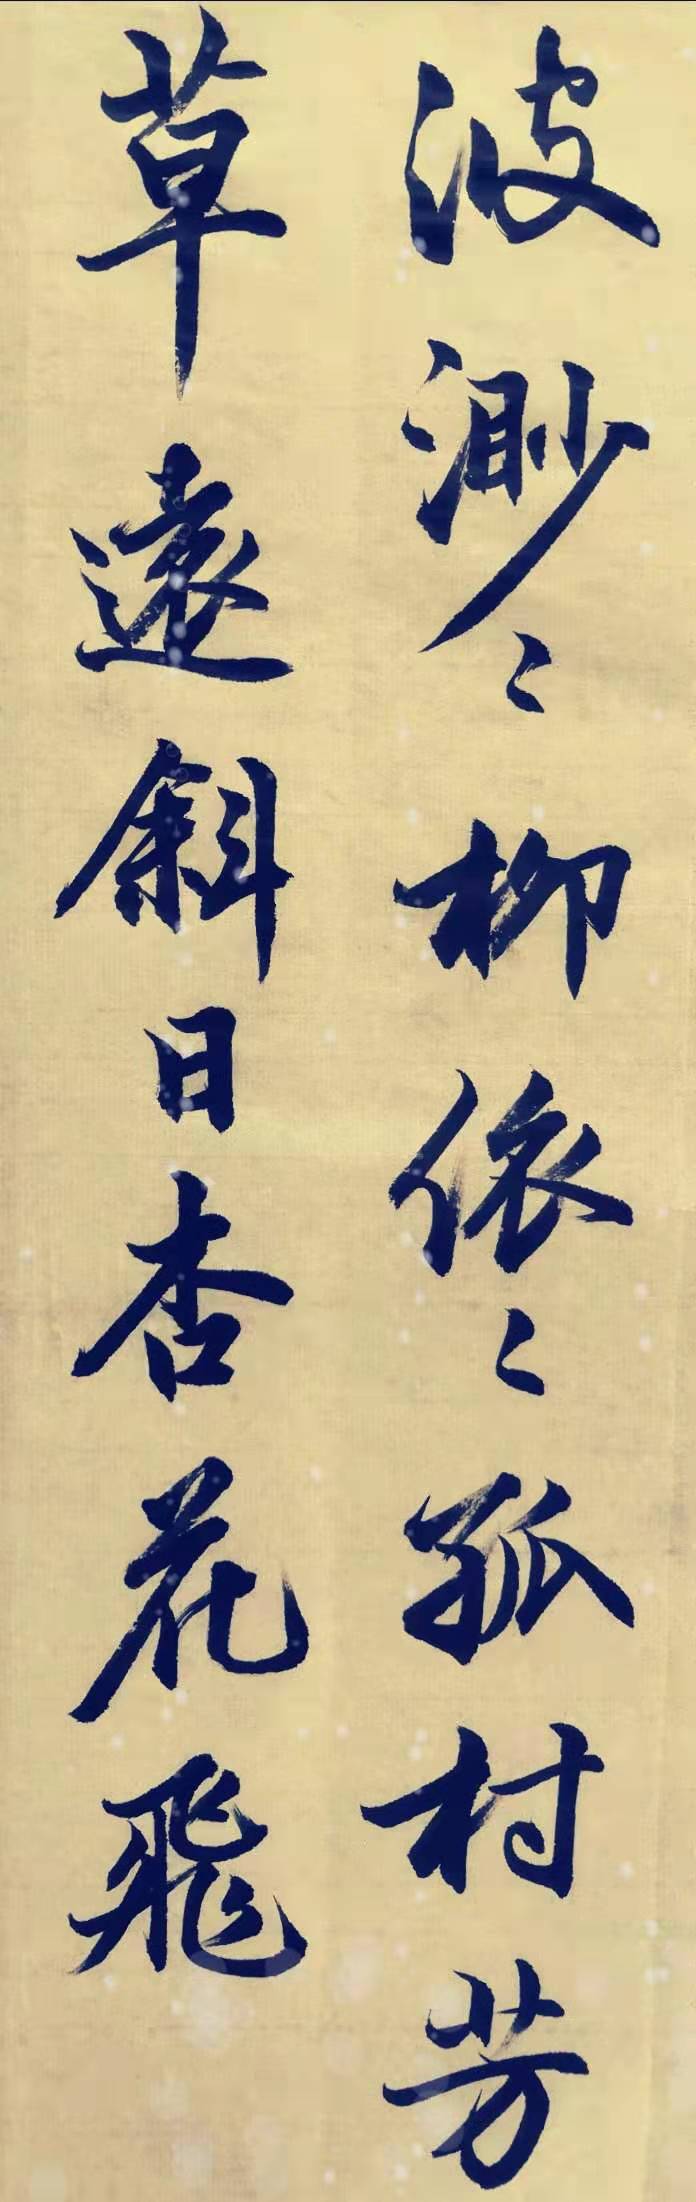 波渺〻柳依〻孤村芳
草遠斜日杏花飛